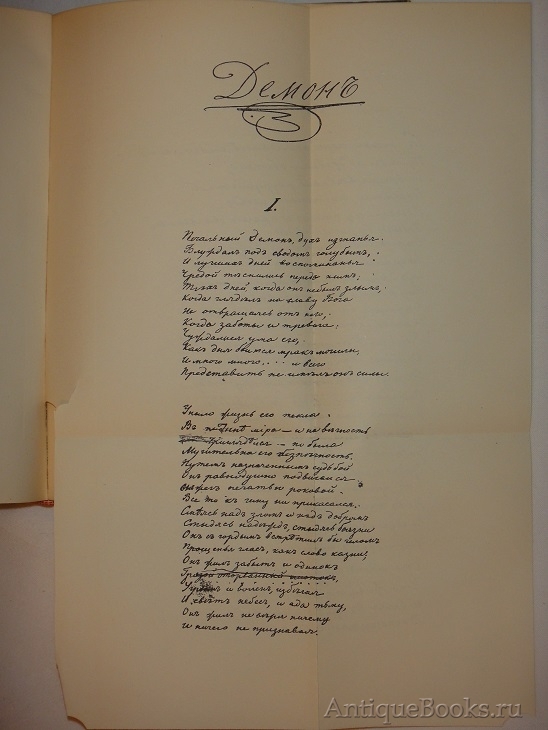 Демонъ
I.
Печальный Демонъ, духъ изгнанья
Блуждалъ подъ сводомъ голубымъ,
И лучшихъ дней воспоминанья
Чредой тѣснились передъ нимъ;
Тѣхъ дней, когда онъ не былъ злымъ,
Когда глядѣлъ на славу Бога
Не отвращаясь отъ него;
Когда заботы и тревога
Чуждалися ума его,
Какъ дня боится мракъ могилы,
И много, много... и всего
Представить не имѣлъ онъ силы.
Уныло жизнь его текла
Въ пустынѣ міра — и на вѣчность
— но была
Мучительна его безпечность.
Путемъ назначеннымъ судьбой
Онъ равнодушно подвигался
печатью роковой
Все то къ чему ни прикасался.
Смѣясь надъ зломъ и надъ добромъ
Стыдясь надеждъ, стыдясь боязни
Онъ съ гордымъ встрѣтилъ бы челомъ
Прощенья гласъ, какъ слово казни;
Онъ жилъ забытъ и одинокъ
Грозой оторванный листокъ,
и воленъ, избѣгалъ
И свѣтъ небесъ, и ада тьму,
Онъ жилъ не вѣря ничему
И ничего не признавая.
AntiqueBooks.ru